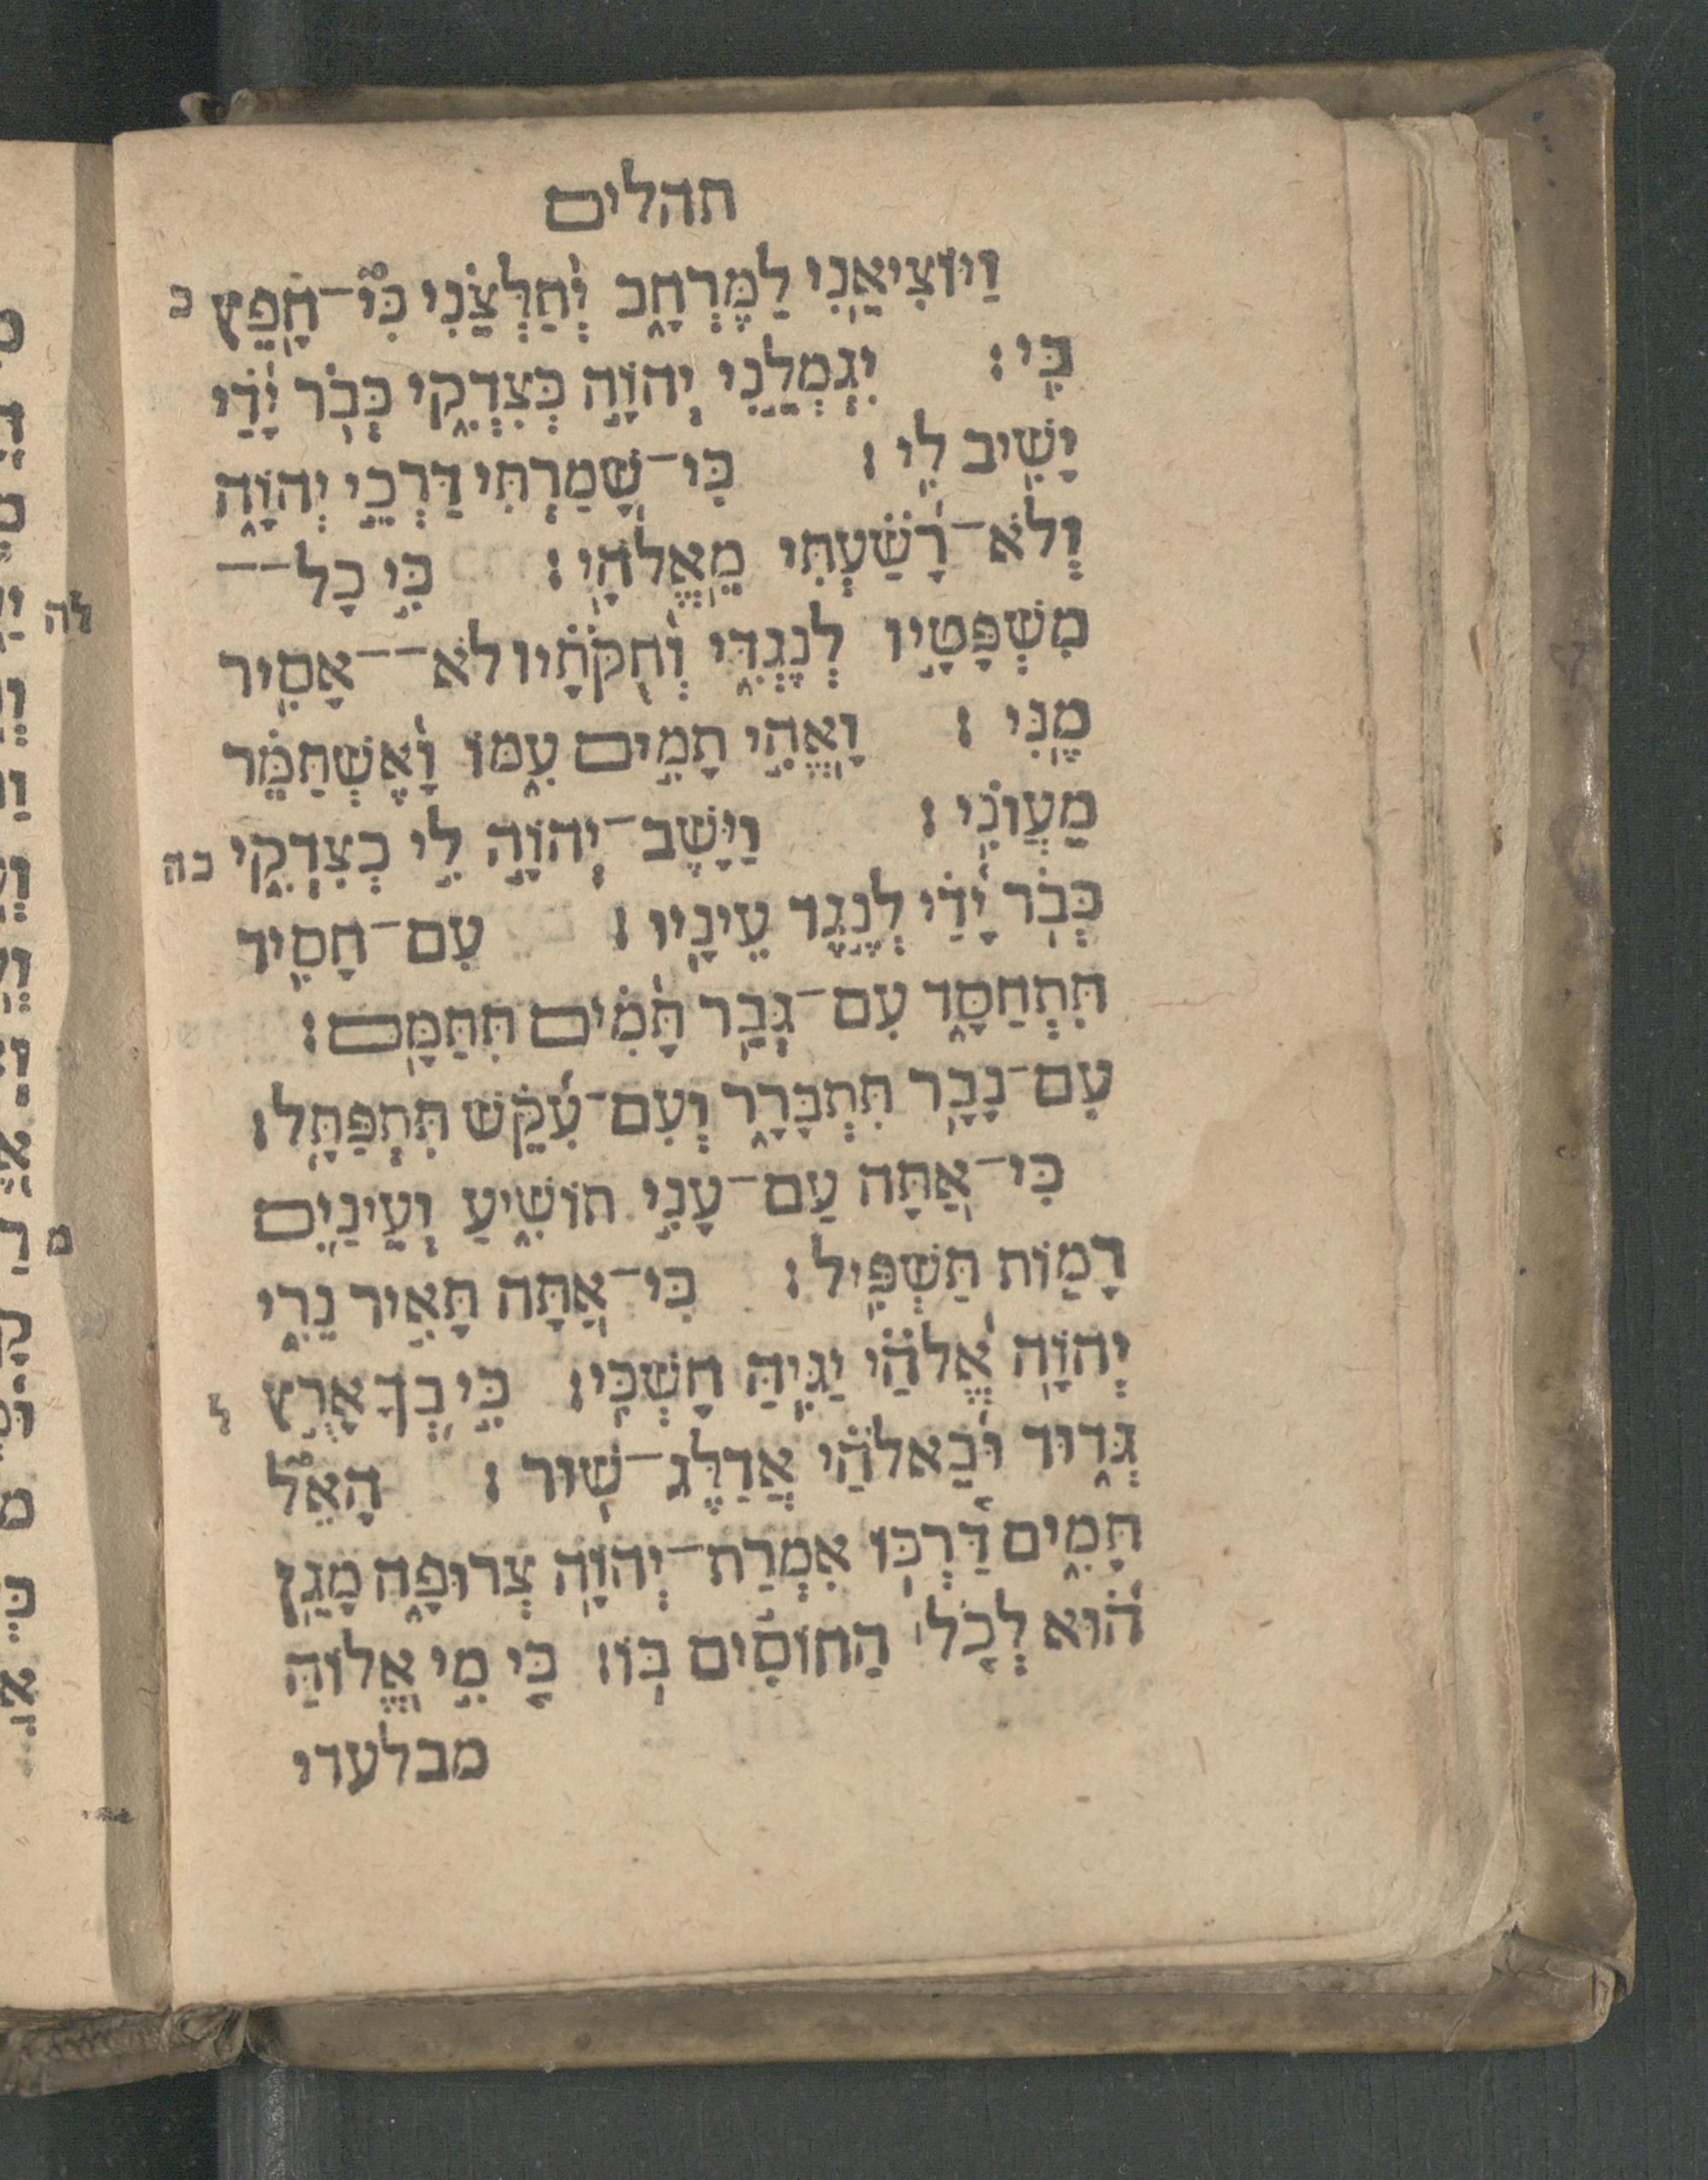 תהלים
וַיּוֹצִיאֵנִי לַמֶּרְחָב יְחַלְּצֵנִי כִּי־חָפֵץ כ
בִּי׃ יִגְמְלֵנִי יְהוָה כְּצִדְקִי כְּבֹר יָדַי
יָשִׁיב לִי׃ כִּי־שָׁמַרְתִּי דַּרְכֵי יְהוָה
וְלֹא־רָשַׁעְתִּי מֵאֱלֹהָי׃ כִּי כָל־־
מִשְׁפָּטָיו לְנֶגְדִּי וְחֻקֹּתָיו לֹא־־אָסִיר
מֶנִּי׃ וָאֱהִי תָמִים עִמּוֹ וָאֶשְׁתַּמֵּר
מֵעֲוֹנִי׃ וַיָּשֶׁב־יְהוָה לִי כְצִדְקִי כה
כְּבֹר יָדַי לְנֶגֶד עֵינָיו׃ עִם־חָסִיד
תִּתְחַסָּד עִם־גְּבַר תָּמִים תִּתַּמָּם׃
עִם־נָבָר תִּתְבָּרָר וְעִם־עִקֵּשׁ תִּתְפַּתָּל׃
כִּי־אַתָּה עַם־עָנִי תוֹשִׁיעַ וְעֵינַיִם
רָמוֹת תַּשְׁפִּיל׃ כִּי־אַתָּה תָּאִיר נֵרִי
יְהוָה אֱלֹהַי יַגִּיהַּ חָשְׁכִּי׃ כִּי בְךָ אָרֻץ ל
גְּדוּד וּבֵאלֹהַי אֲדַלֶּג־שׁוּר׃ הָאֵל
תָּמִים דַּרְכּוֹ אִמְרַת־יְהוָה צְרוּפָה מָגֵן
הוּא לְכֹל הַחוֹסִים בּוֹ׃ כִּי מִי אֱלוֹהַּ
מבלעדי
לה
מ